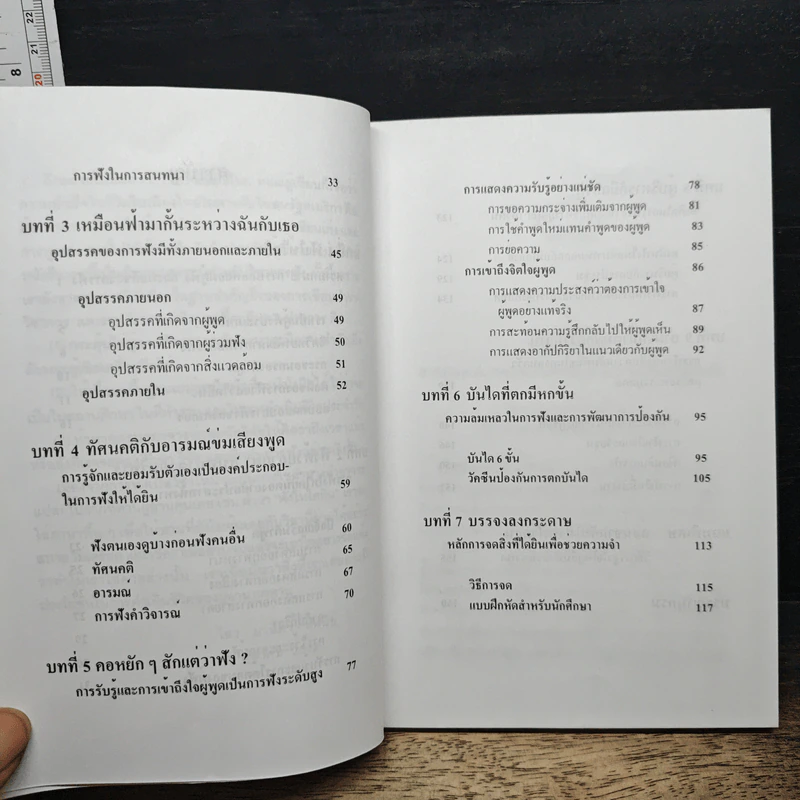 การฟังในการสนทนา 33
บทที่ 3 เหมือนฟ้ามากั้นระหว่างฉันกับเธอ
อุปสรรคของการฟังมีทั้งภายนอกและภายใน 45
อุปสรรคภายนอก 49
อุปสรรคที่เกิดจากผู้พูด 49
อุปสรรคที่เกิดจากผู้ร่วมฟัง 50
อุปสรรคที่เกิดจากสิ่งแวดล้อม 51
อุปสรรคภายใน 52
บทที่ 4 ทัศนคติกับอารมณ์ข่มเสียงพูด
การรู้จักและยอมรับตัวเองเป็นองค์ประกอบ-
ในการฟังให้ได้ยิน 59
ฟังตนเองดูบ้างก่อนฟังคนอื่น 60
ทัศนคติ 65
อารมณ์ 67
การฟังคำวิจารณ์ 70
บทที่ 5 คอหยัก ๆ สักแต่ว่าฟัง ?
การรับรู้และการเข้าถึงใจผู้พูดเป็นการฟังระดับสูง 77
การแสดงความรับรู้อย่างแน่ชัด 78
การขอความกระจ่างเพิ่มเติมจากผู้พูด 81
การใช้คำพูดใหม่แทนคำพูดของผู้พูด 83
การย่อความ 85
การเข้าถึงจิตใจผู้พูด 86
การแสดงความประสงค์ว่าต้องการเข้าใจ
ผู้พูดอย่างแท้จริง 87
การสะท้อนความรู้สึกกลับไปให้ผู้พูดเห็น 89
การแสดงอากัปกิริยาในแนวเดียวกับผู้พูด 92
บทที่ 6 บันไดที่ตกมีหกขั้น
ความล้มเหลวในการฟังและการพัฒนาการป้องกัน 95
บันได 6 ขั้น 95
วัคซีนป้องกันการตกบันได 105
บทที่ 7 บรรจงลงกระดาษ
หลักการจดสิ่งที่ได้ยินเพื่อช่วยความจำ 113
วิธีการจด 115
แบบฝึกหัดสำหรับนักศึกษา 117
8
20
21
22